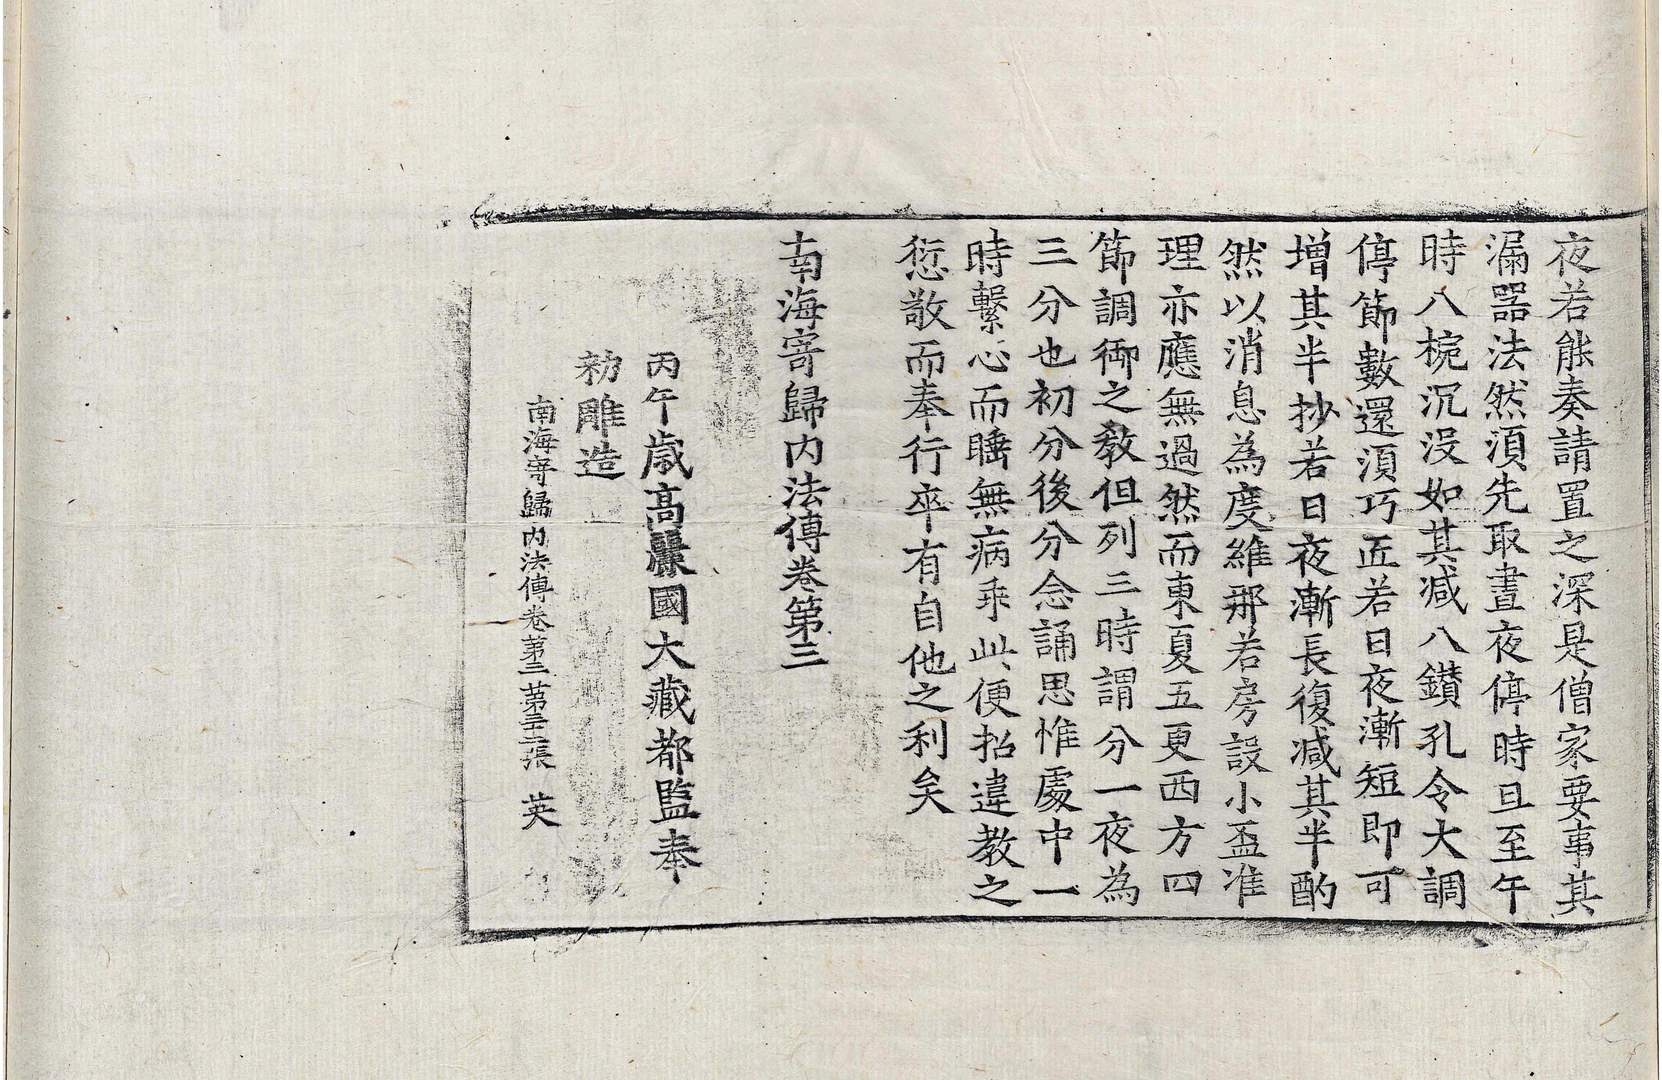 夜若能奏請置之深是僧家要事其
漏器法然湏先取晝夜停時旦至午
時八椀沉没如其减八鑚孔令大調
停節數還湏巧近若日夜漸短即可
增其半抄若日夜漸長復减其半酌
然以消息為度維那若房設小盃准
理亦應無過然而東夏五更西方四
節調御之教但列三時謂分一夜為
三分也初分後分念誦思惟處中一
時繫心而睡無病乖此便招違教之
愆敬而奉行卒有自他之利矣
南海寄歸内法傳卷第三
丙午歳高麗國大藏都監奉
勑雕造
南海寄歸内法傳卷第三 第 張 英